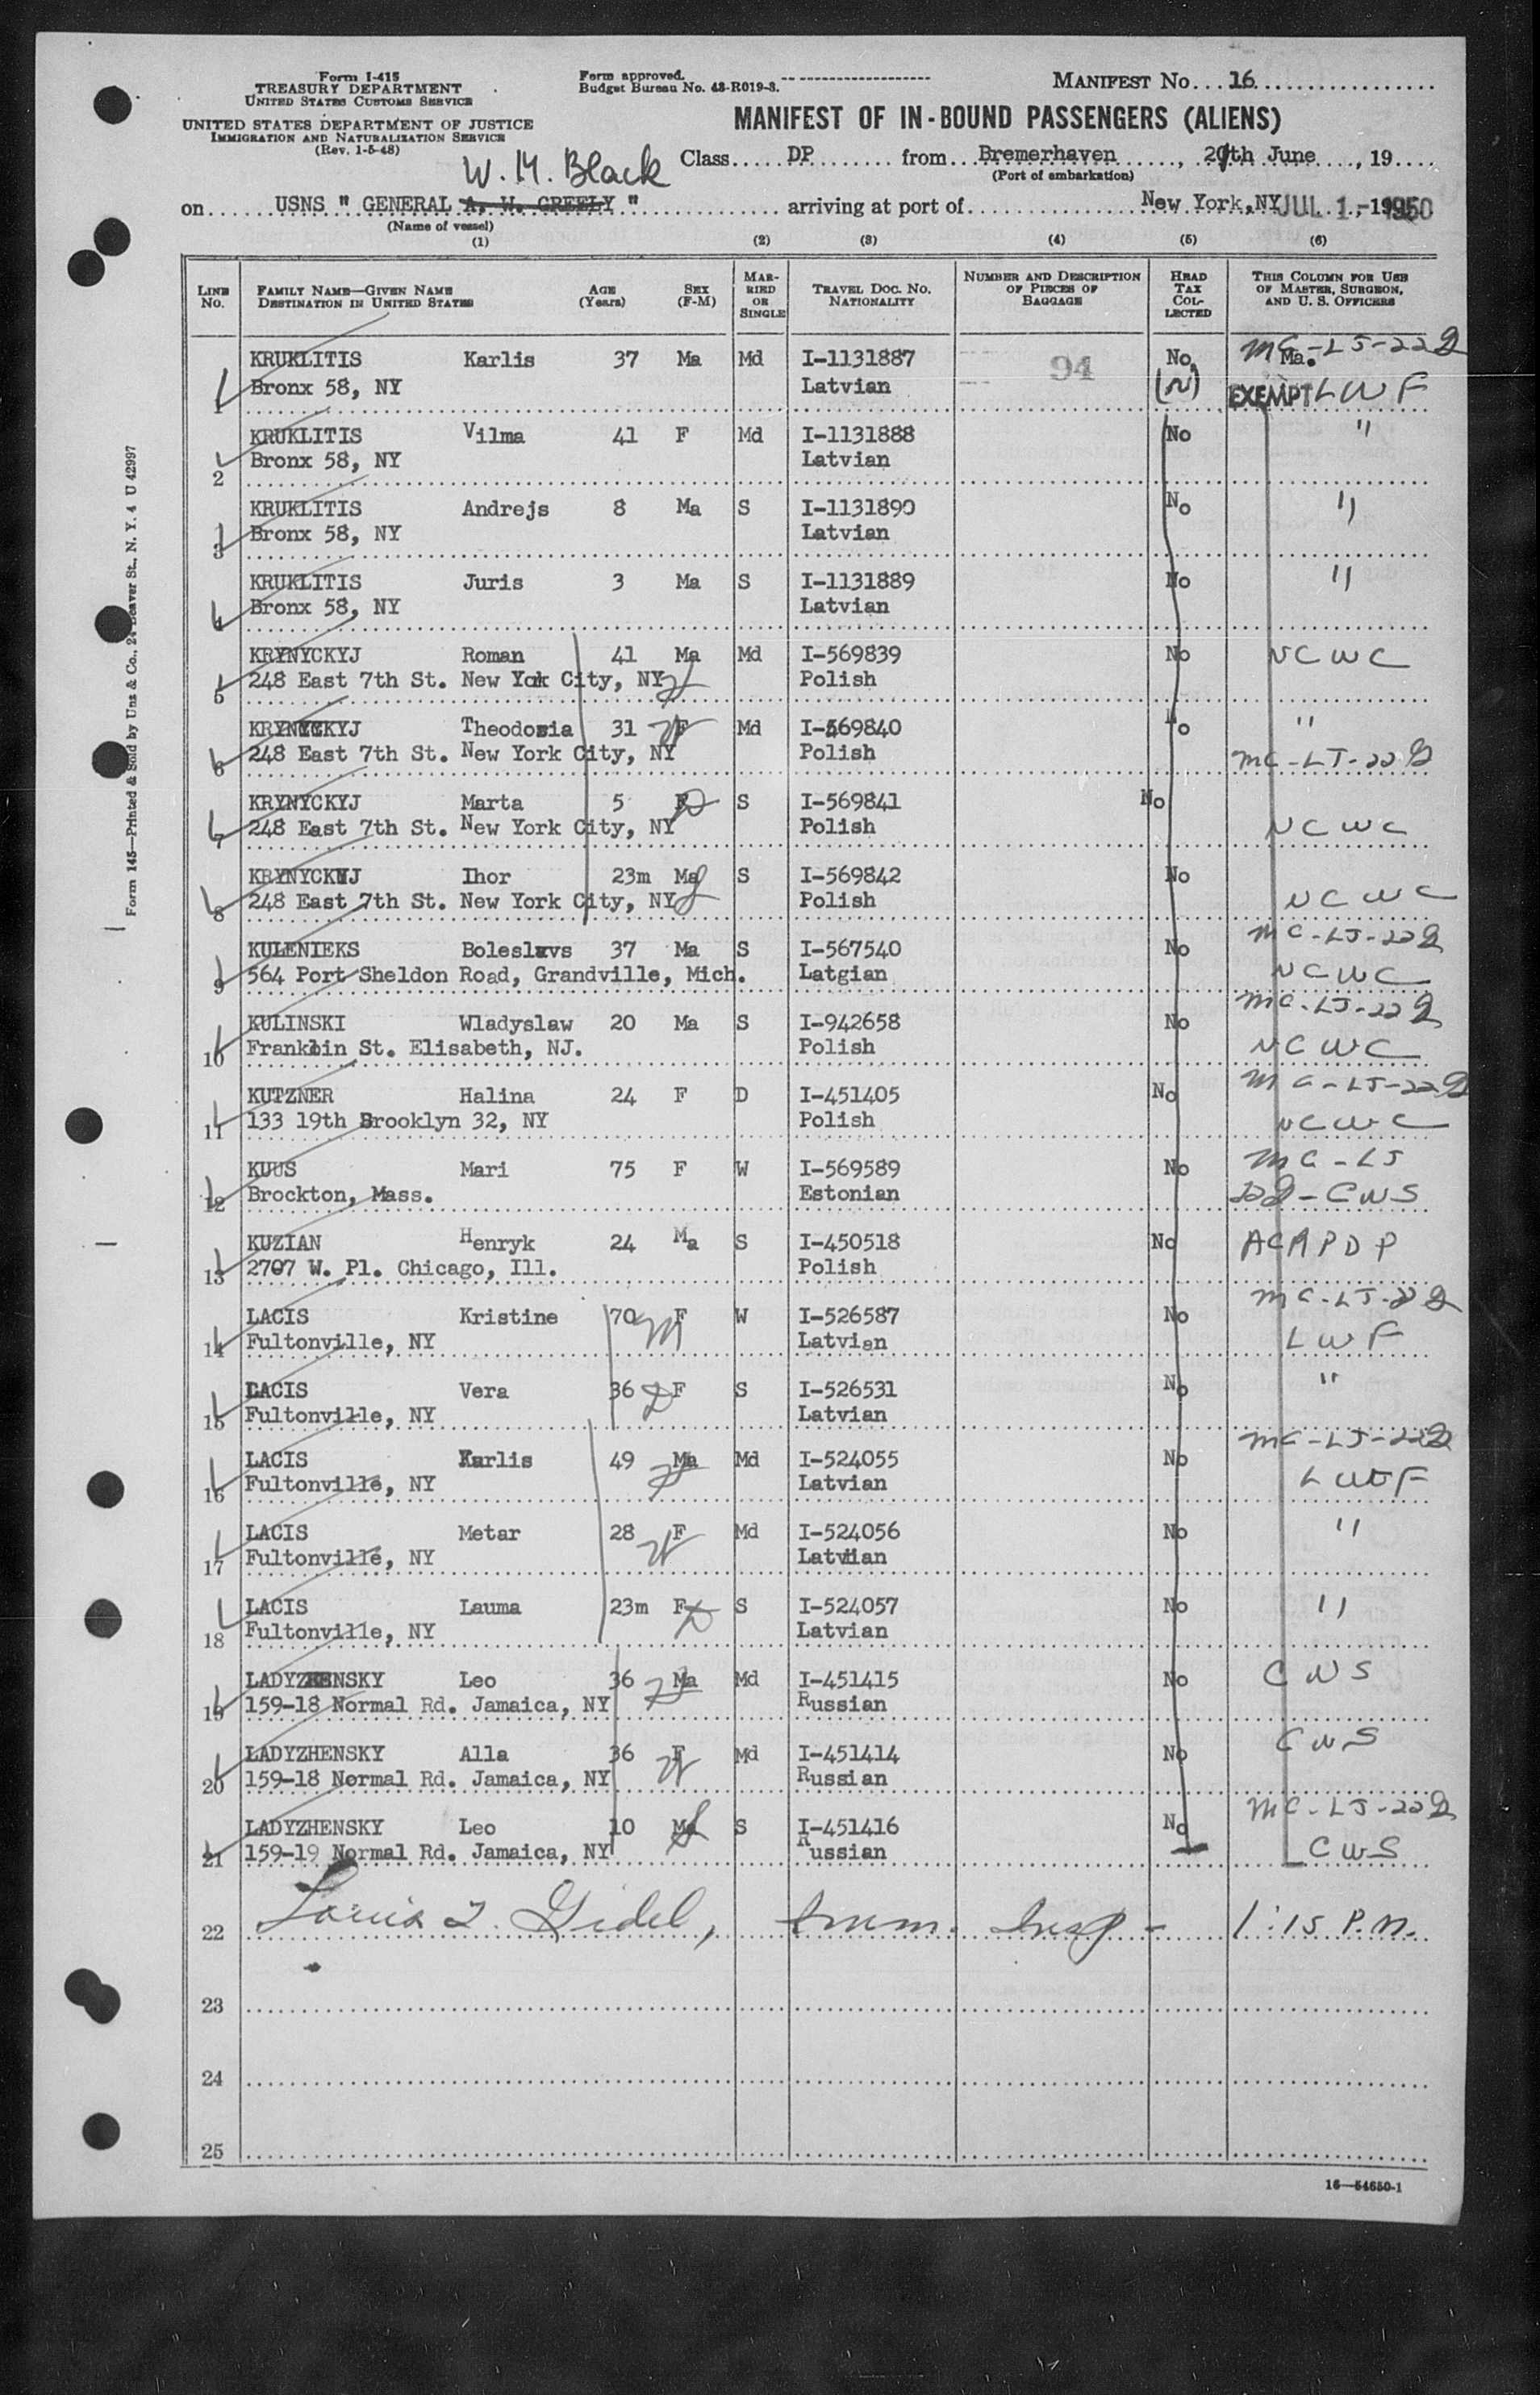 Form I-415
TREASURY DEPARTMENT
UNITED STATES CUSTOMS SERVICE
UNITED STATES DEPARTMENT OF JUSTICE
IMMIGRATION AND NATURALIZATION SERVICE
(Rev. 1-5-48)
Form approved.
Budget Bureau No. 43-R019-3.
MANIFEST No. 16
MANIFEST OF IN-BOUND PASSENGERS (ALIENS)
Class DP from Bremerhaven, 20th June, 19
(Port of embarkation)
W. M. Black
on USNS " GENERAL A. W. GREELY " arriving at port of New York, NY JUL 1-1950
(Name of vessel)
(1) (2) (3) (4) (5) (6)
LINE No. FAMILY NAME—GIVEN NAME DESTINATION IN UNITED STATES AGE (Years) SEX (F-M) MARRIED OR SINGLE TRAVEL DOC. NO. NATIONALITY NUMBER AND DESCRIPTION OF PIECES OF BAGGAGE HEAD TAX COLLECTED THIS COLUMN FOR USE OF MASTER, SURGEON, AND U. S. OFFICERS
KRUKLITIS Karlis 37 Ma Md I-1131887 94 No. Ma. MC-LJ-22
1 Bronx 58, NY Latvian (N) EXEMPT LWF
KRUKLITIS Vilma 41 F Md I-1131888 No "
2 Bronx 58, NY Latvian
KRUKLITIS Andrejs 8 Ma S I-1131890 No "
3 Bronx 58, NY Latvian
KRUKLITIS Juris 3 Ma S I-1131889 No "
4 Bronx 58, NY Latvian
KRYNYCKYJ Roman 41 Ma Md I-569839 No NCWC
5 248 East 7th St. New York City, NY Polish
KRYNYCKYJ Theodosia 31 F Md I-569840 No "
6 248 East 7th St. New York City, NY Polish MC-LJ-22
KRYNYCKYJ Marta 5 F S I-569841 No
7 248 East 7th St. New York City, NY Polish NCWC
KRYNYCKYJ Ihor 23m Ma S I-569842 No
8 248 East 7th St. New York City, NY Polish NCWC
KULENIEKS Boleslavs 37 Ma S I-567540 No MC-LJ-22
9 564 Port Sheldon Road, Grandville, Mich. Latgian NCWC
KULINSKI Wladyslaw 20 Ma S I-942658 No MC-LJ-22
10 Franklin St. Elisabeth, NJ. Polish NCWC
KUTZNER Halina 24 F D I-451405 No MC-LJ-22
11 133 19th Brooklyn 32, NY Polish NCWC
KUUS Mari 75 F W I-569589 No MC-LJ
12 Brockton, Mass. Estonian 22-CWS
KUZIAN Henryk 24 Ma S I-450518 No ACRPDP
13 2707 W. Pl. Chicago, Ill. Polish
LACIS Kristine 70 F W I-526587 No MC-LJ-22
14 Fultonville, NY Latvian LWF
LACIS Vera 36 F S I-526531 No "
15 Fultonville, NY Latvian
LACIS Karlis 49 Ma Md I-524055 No MC-LJ-22
16 Fultonville, NY Latvian LWF
LACIS Metar 28 F Md I-524056 No "
17 Fultonville, NY Latvian
LACIS Lauma 23m F S I-524057 No "
18 Fultonville, NY Latvian
LADYZHENSKY Leo 36 Ma Md I-451415 No CWS
19 159-18 Normal Rd. Jamaica, NY Russian
LADYZHENSKY Alla 36 F Md I-451414 No CWS
20 159-18 Normal Rd. Jamaica, NY Russian
LADYZHENSKY Leo 10 Ma S I-451416 No MC-LJ-22
21 159-19 Normal Rd. Jamaica, NY Russian CWS
22 Louis I. Gidel, Imm. Insp - 1:15 P.M.
23
24
25
16—54650-1
Form 145—Printed & Sold by Unz & Co., 24 Beaver St., N. Y. 4 U 42997